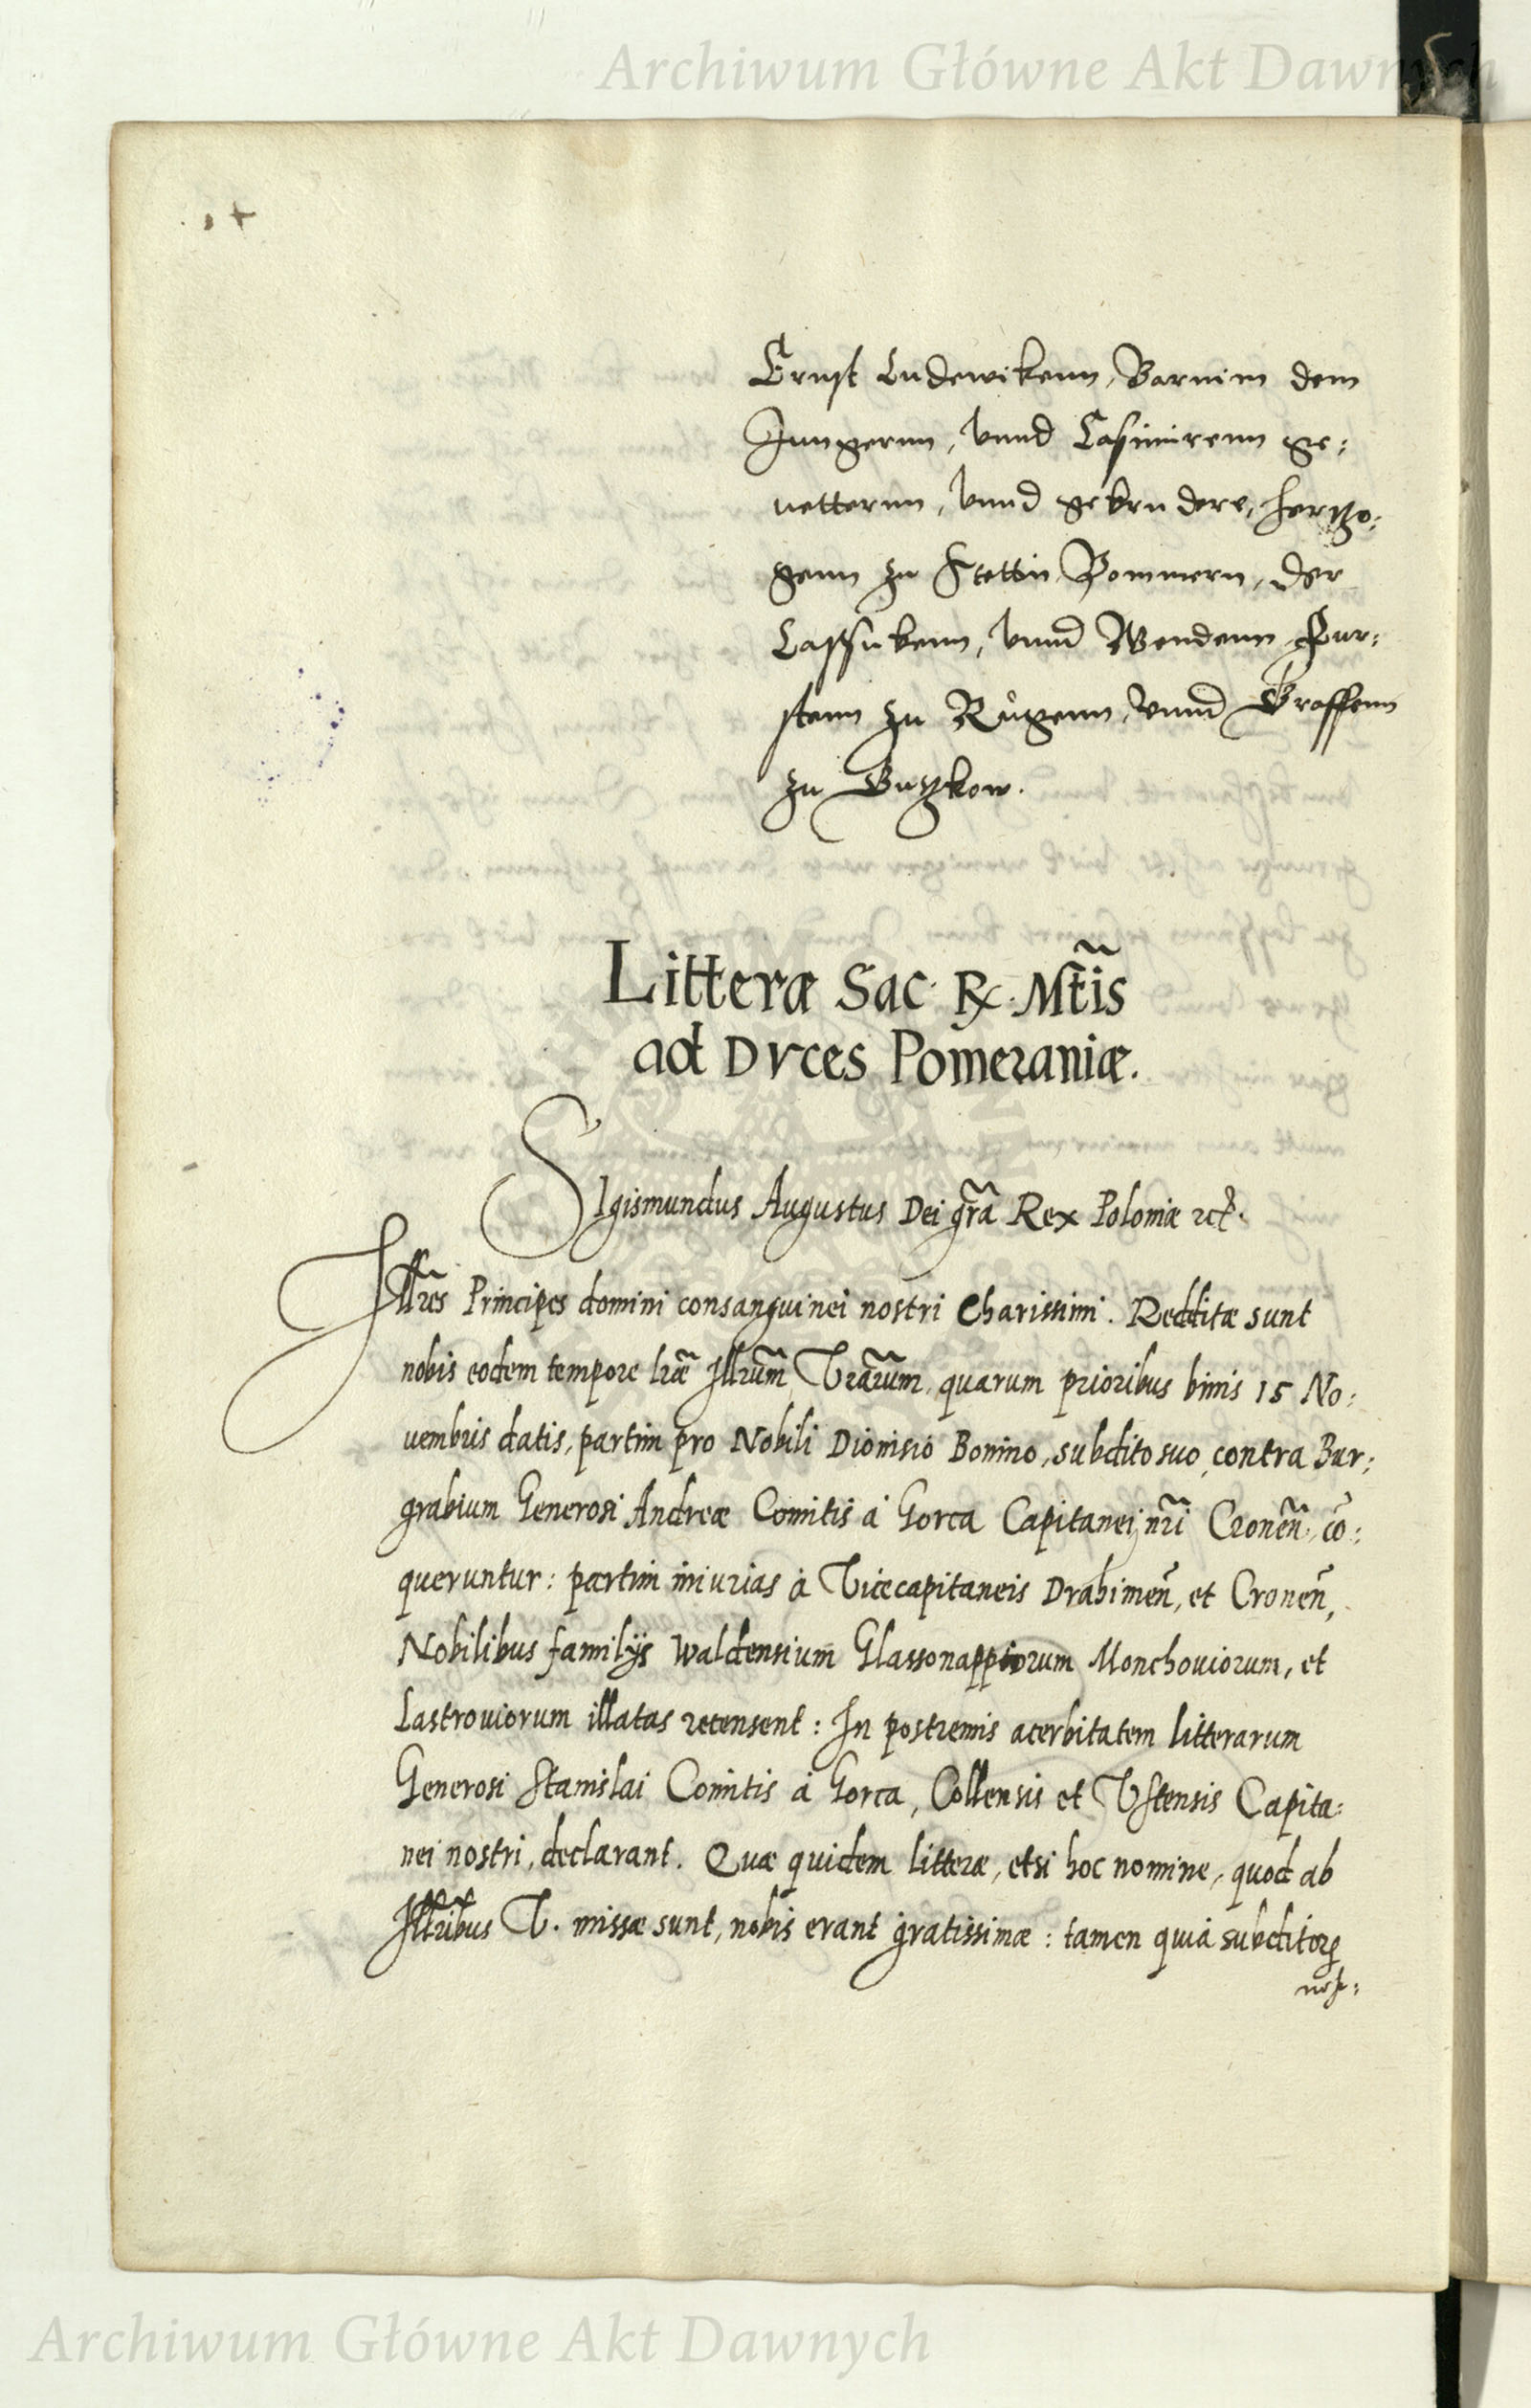 Archiwum Główne Akt Dawnych
Ernst Ludewikenn, Barnim dem
Jungernn, vnnd Casimirenn ge:
uetternn, vnnd gebrudere, Hertzo:
genn zu Stettin Pommern, der
Cassubenn, vnnd Wendenn Fur:
stenn zu Rugenn, vnnd Graffenn
zu Gutzkow.
Litteræ Sac. R. Mt̃is
ad Dvces Pomeraniæ.
SIgismundus Augustus Dei gr̃a Rex Poloniæ etc̃.
Illr̃es Principes domini consanguinei nostri Charissimi. Redditæ sunt
nobis eodem tempore lr̃æ Illr̃um Vr̃arum, quarum prioribus binis 15 No:
uembris datis, partim pro Nobili Dionisio Bonino, subdito suo, contra Bur:
grabium Generosi Andreæ Comitis à Gorca Capitanei nr̃i Cronen̄. cō:
queruntur: partim iniurias à Vicecapitaneis Drahimen̄, et Cronen̄,
Nobilibus familijs Waldensium Glassonappiorum Monchouiorum, et
Lastrouiorum illatas recensent: In postremis acerbitatem litterarum
Generosi Stanislai Comitis à Gorca, Collensis et Vstensis Capita:
nei nostri, declarant. Quæ quidem litteræ, etsi hoc nomine, quod ab
Illr̃ibus V. missæ sunt, nobis erant gratissimæ: tamen quia subditorꝝ
nos:
Archiwum Główne Akt Dawnych